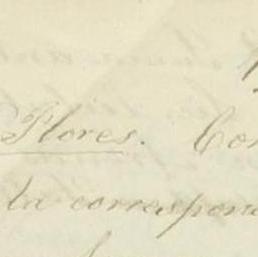 Flores. Con
la correspon